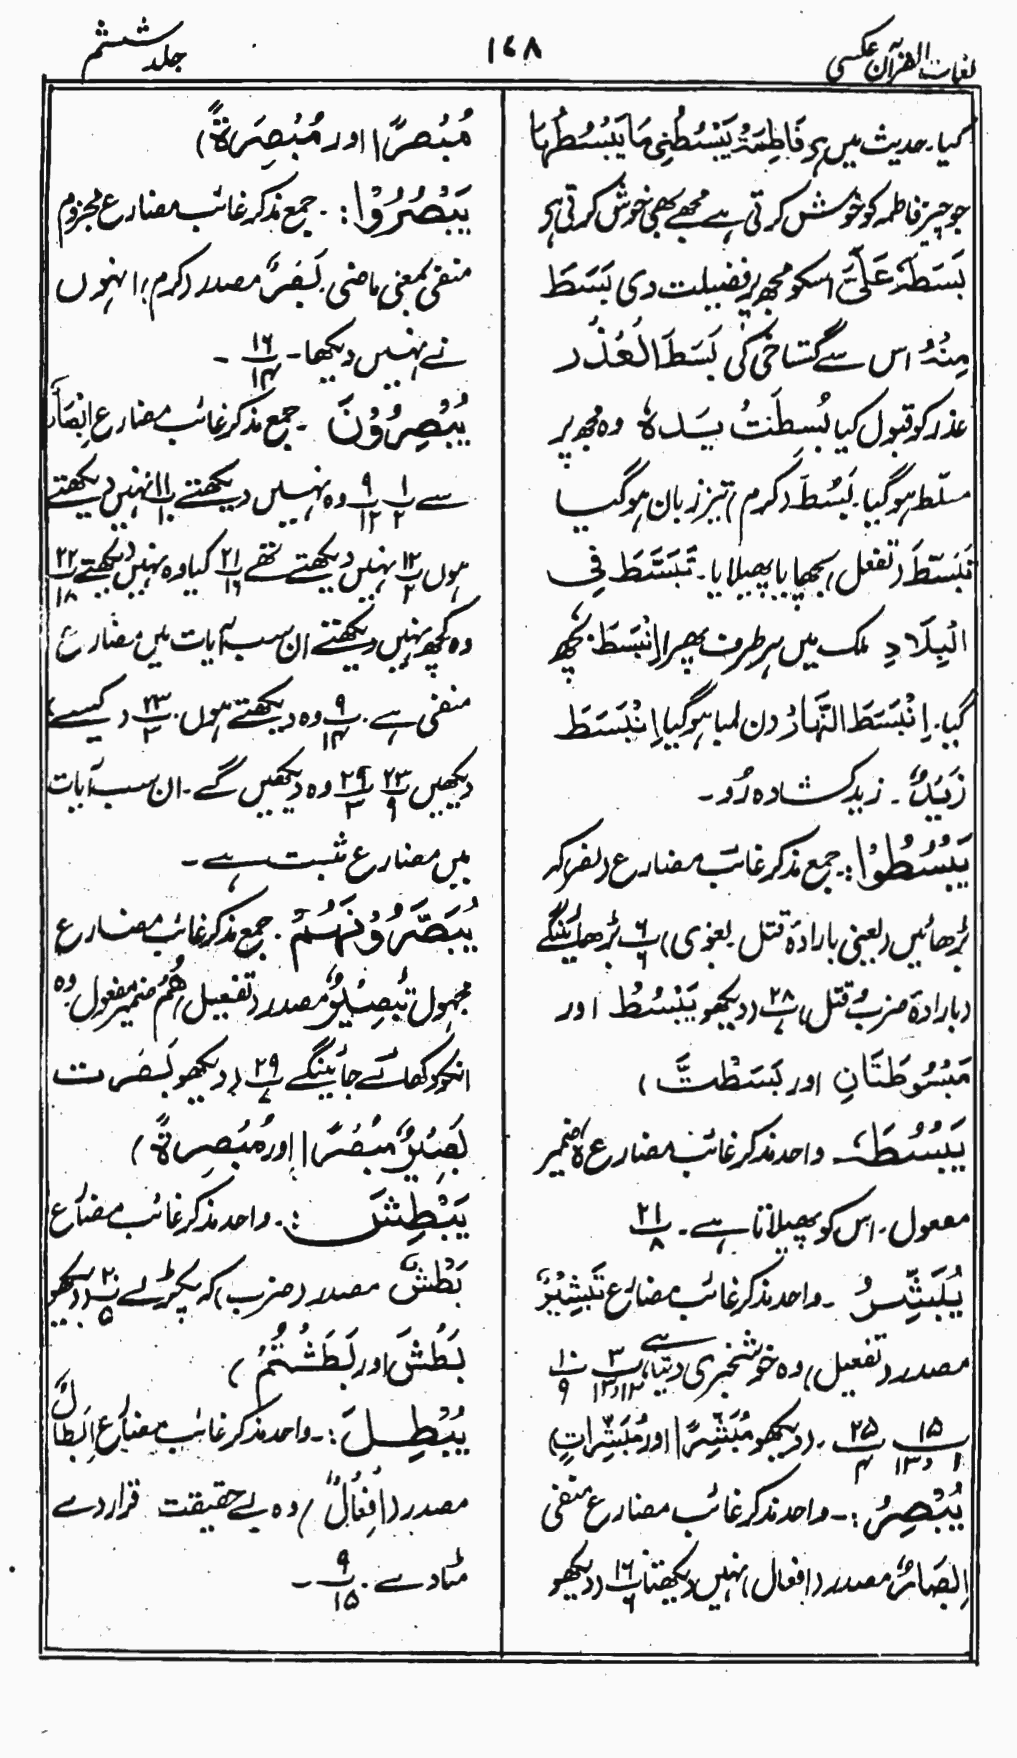 لغات القرآن عکسی
۱۴۸
جلد ششم
کیا۔ حدیث میں ہے فَاطِمَۃُ یَبْسُطُنِی مَا یَبْسُطُہَا
جو چیز فاطمہ کو خوش کرتی ہے مجھے بھی خوش کرتی ہے
بَسَطَہٗ عَلَیَّ اسکو مجھ پر فضیلت دی بَسَطَ
مِنْہُ اس سے گستاخی کی بَسَطَ الْعُذْر
عذر کو قبول کیا بُسِطَتْ یَدُہٗ وہ مجھ پر
مسلّط ہو گیا۔ بَسُطَ (کرم) تیز زبان ہو گیا
تَبَسَّطَ (تفعل) بچھایا یا پھیلایا۔ تَبَسَّطَ فِی
الْبِلَادِ ملک میں ہر طرف پھرا اِنْبَسَطَ بچھ
گیا۔ اِنْبَسَطَ النَّہَارُ دن لمبا ہو گیا اِنْبَسَطَ
زَیْدٌ۔ زید کشادہ رُو۔
یَبْسُطُوْا:۔ جمع مذکر غائب مضارع (نصر) کہ
بڑھائیں (یعنی بارادۂ قتل۔ بغوی) پ ۶/۶ بڑھائینگے
(بارادۂ ضرب و قتل) پ ۲۸/۷ (دیکھو یَبْسُطُ اور
مَبْسُوْطَتَانِ اور بَسَطْتَّ)
یَبْسُطُہٗ۔ واحد مذکر غائب مضارع ہٗ ضمیر
مفعول۔ اس کو پھیلاتا ہے۔ ۲۱/۸
یُبَشِّرُ۔ واحد مذکر غائب مضارع تَبْشِیْرٌ
مصدر (تفعیل) وہ خوشخبری دیتا ہے پ ۳/۱۲و۱۳ ۱۰/۹
۱۵/۱ و۱۳ ۲۵/۴۔ (دیکھو مُبَشِّرًا اور مُبَشِّرَاتٍ)
یُبْصِرُ:۔ واحد مذکر غائب مضارع منفی
اِبْصَارٌ مصدر (افعال) نہیں دیکھتا پ ۱۶/۶ (دیکھو
مُبْصِرًا اور مُبْصِرَۃً)
یَبْصُرُوْا:۔ جمع مذکر غائب مضارع مجزوم
منفی بمعنی ماضی۔ بَصَرٌ مصدر (کرم) انہوں
نے نہیں دیکھا۔ ۱۶/۱۴۔
یُبْصِرُوْنَ۔ جمع مذکر غائب مضارع اِبْصَارٌ
سے ۱/۲ ۹/۱۲ وہ نہیں دیکھتے پ ۱۱/۱۰ نہیں دیکھتے
ہوں پ ۱۲/۲ نہیں دیکھتے تھے ۲۱/۱۶ کیا وہ نہیں دیکھتے ۲۲/۱۸
وہ کچھ نہیں دیکھتے ان سب آیات میں مضارع
منفی ہے۔ ۹/۱۴ وہ دیکھتے ہوں۔ ۲۳/۳ کیسے
دیکھیں ۲۳/۹ ۲۹/۳ وہ دیکھیں گے۔ ان سب آیات
میں مضارع مثبت ہے۔
یُبَصَّرُوْنَہُمْ۔ جمع مذکر غائب مضارع
مجہول تَبْصِیْرٌ مصدر (تفعیل) ہُمْ ضمیر مفعول وہ
انکو دکھائے جائینگے پ ۲۹/۷ (دیکھو بَصُرَت
بَصِیْرٌ مُبْصِرًا اور مُبْصِرَۃً)
یَبْطِشَ:۔ واحد مذکر غائب مضارع
بَطْشٌ مصدر (ضرب) کہ پکڑلے پ ۲۰/۵ (دیکھو
بَطْشَ اور بَطَشْتُمْ)
یُبْطِلَ:۔ واحد مذکر غائب مضارع اِبْطَالٌ
مصدر (اِفْعَالٌ) وہ بے حقیقت قرار دے
مٹا دے۔ پ ۹/۱۵۔